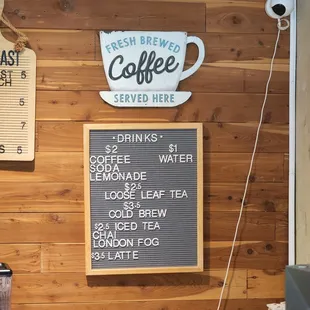 FRESH BREWED
Coffee
SERVED HERE
AST
CH
S
·DRINKS·
$2 $1
COFFEE WATER
SODA
LEMONADE
$2.5
LOOSE LEAF TEA
$3.5
COLD BREW
$2.5 ICED TEA
CHAI
LONDON FOG
$3.5 LATTE